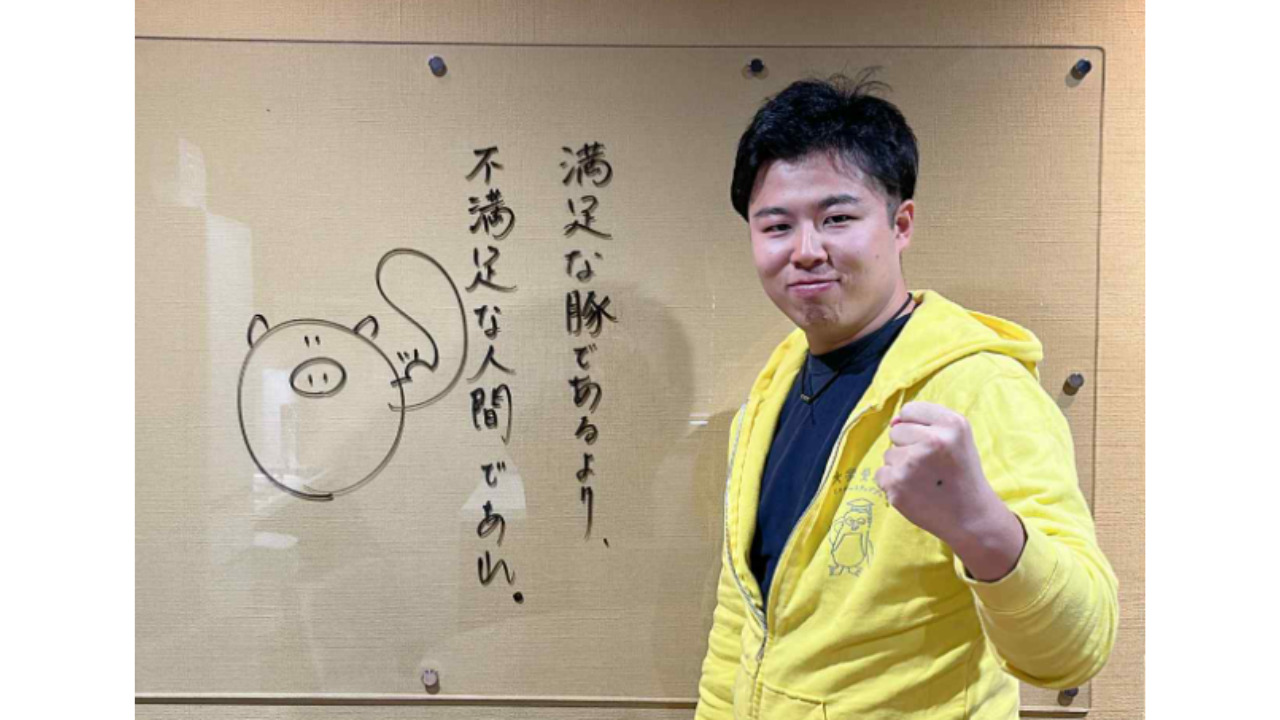 満足な豚であるより、
不満足な人間であれ.